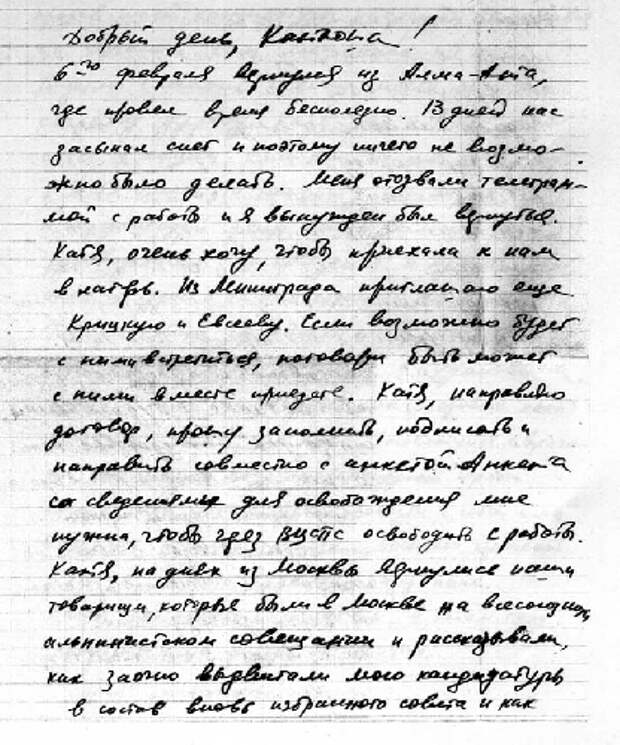 Добрый день, Катюша!
6го февраля вернулся из Алма-Ата,
где провел время бесполезно. 13 дней нас
засыпал снег и поэтому ничего не возмо-
жно было делать. Меня отозвали телеграм-
мой с работы и я вынужден был вернуться.
Катя, очень хочу, чтобы приехала к нам
в лагерь. Из Ленинграда приглашаю еще
Крицкую и Евсееву. Если возможно будет
с ними встретиться, поговори быть может
с ними вместе приедете. Катя, направляю
договор, прошу заполнить, подписать и
направить совместно с анкетой. Анкета
со сведениями для освобождения мне
нужна, чтобы через ВЦСПС освободить с работы.
Катя, на днях из Москвы вернулись наши
товарищи, которые были в Москве на всесоюзном
альпинистском совещании и рассказывали,
как заочно выдвигали мою кандидатуру
в состав вновь избранного совета и как